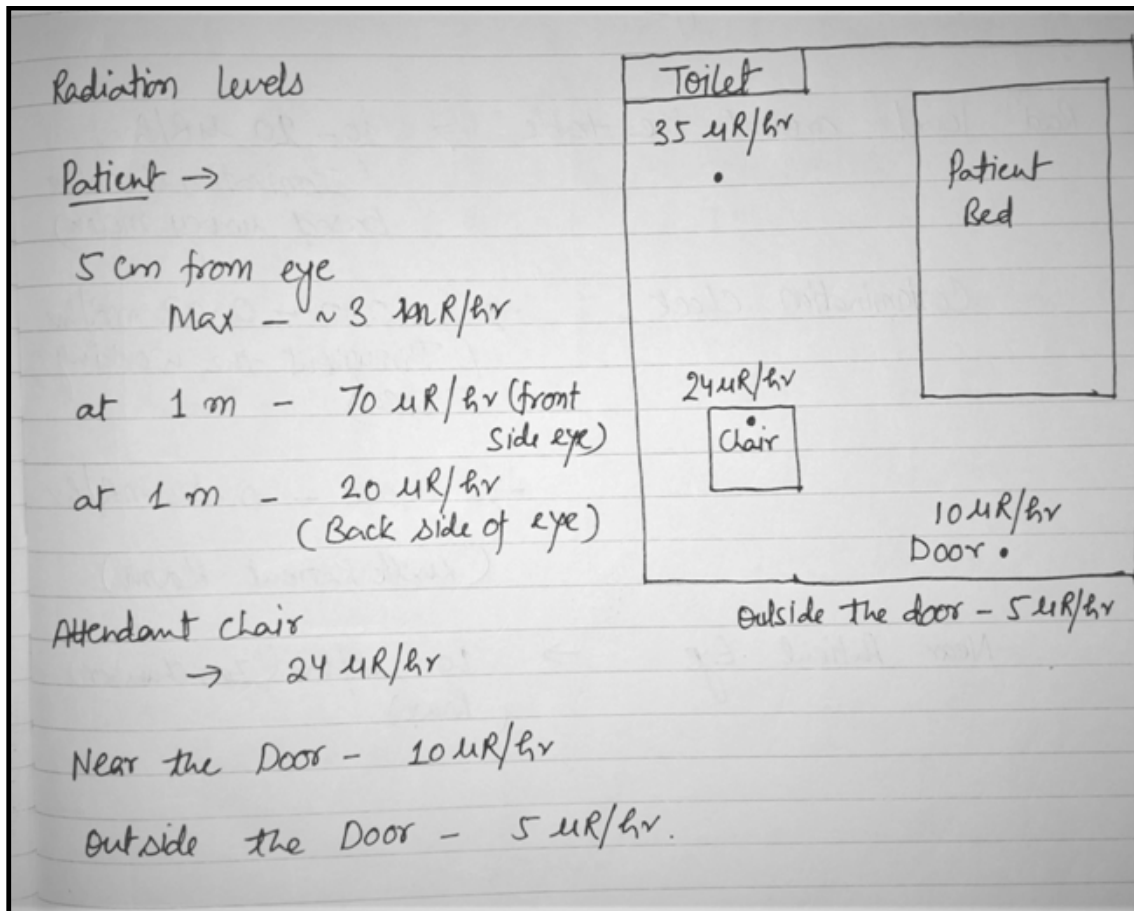 Radiation levels
Patient →
5 cm from eye
Max - ~3 mR/hr
at 1 m - 70 μR/hr (front
side eye)
at 1 m - 20 μR/hr
(Back side of eye)
Attendant chair
→ 24 μR/hr
Near the Door - 10 μR/hr
Outside the Door - 5 μR/hr.
Toilet
35 μR/hr
Patient
Bed
24 μR/hr
Chair
10 μR/hr
Door
Outside the door - 5 μR/hr